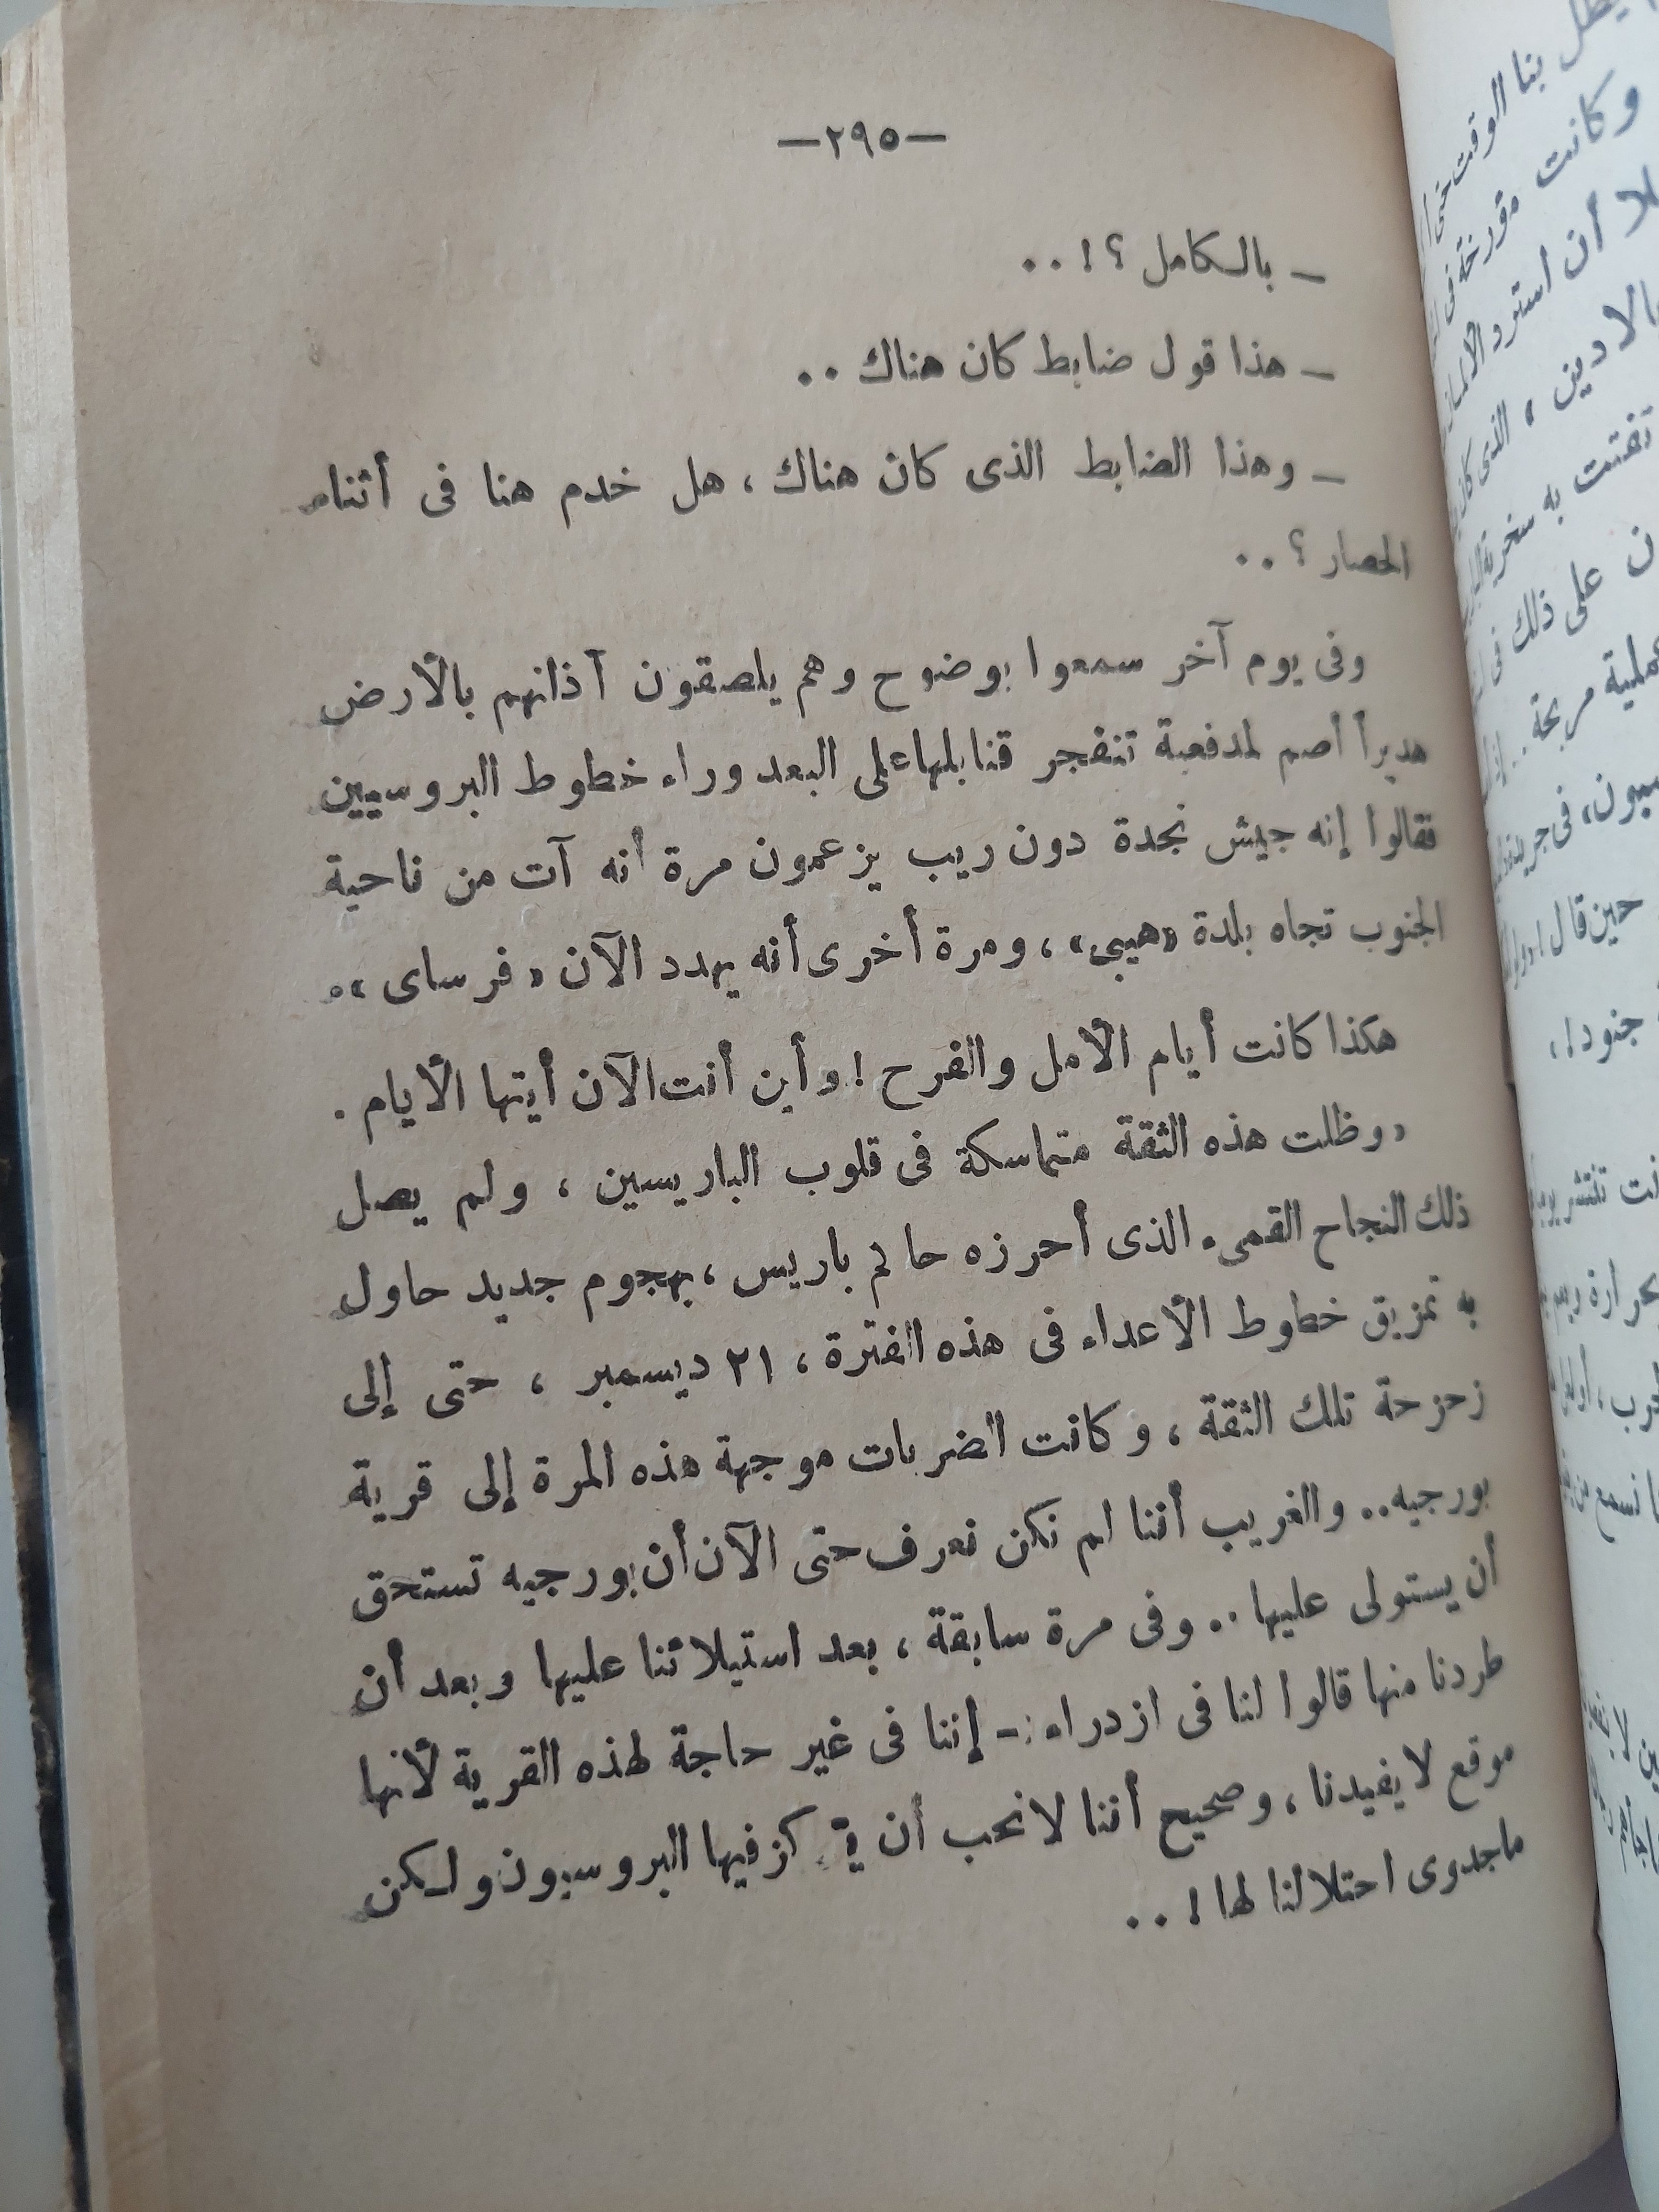 —٢٩٥—
— بالكامل ؟! ..
— هذا قول ضابط كان هناك ..
— وهذا الضابط الذى كان هناك ، هل خدم هنا فى أثناء
الحصار ؟ ..
وفى يوم آخر سمعوا بوضوح وهم يلصقون آذانهم بالأرض
هديراً أصم لمدفعية تنفجر قنابلها على البعد وراء خطوط البروسيين
فقالوا إنه جيش نجدة دون ريب يزعمون مرة أنه آت من ناحية
الجنوب تجاه بلدة «هيبى» ، ومرة أخرى أنه يهدد الآن « فرساى » .
هكذا كانت أيام الأمل والفرح ! وأين أنت الآن أيتها الأيام .
« وظلت هذه الثقة متماسكة فى قلوب الباريسين ، ولم يصل
ذلك النجاح القمىء الذى أحرزه حاكم باريس ، بهجوم جديد حاول
به تمزيق خطوط الأعداء فى هذه الفترة ، ٢١ ديسمبر ، حتى إلى
زحزحة تلك الثقة ، وكانت الضربات موجهة هذه المرة إلى قرية
بورجيه .. والغريب أننا لم نكن نعرف حتى الآن أن بورجيه تستحق
أن يستولى عليها .. وفى مرة سابقة ، بعد استيلائنا عليها وبعد أن
طردنا منها قالوا لنا فى ازدراء :- إننا فى غير حاجة لهذه القرية لأنها
موقع لا يفيدنا ، وصحيح أننا لا نحب أن فيها البروسيون ولكن
ماجدوى احتلالنا لها ! ..
بنا الوقت
وكانت مؤرخة فى
أن استرد
، الذى كان
به سخرية
على ذلك فى
مربحة ..
فى جريدة
حين قال
جنود !
تنتشر
نسمع من